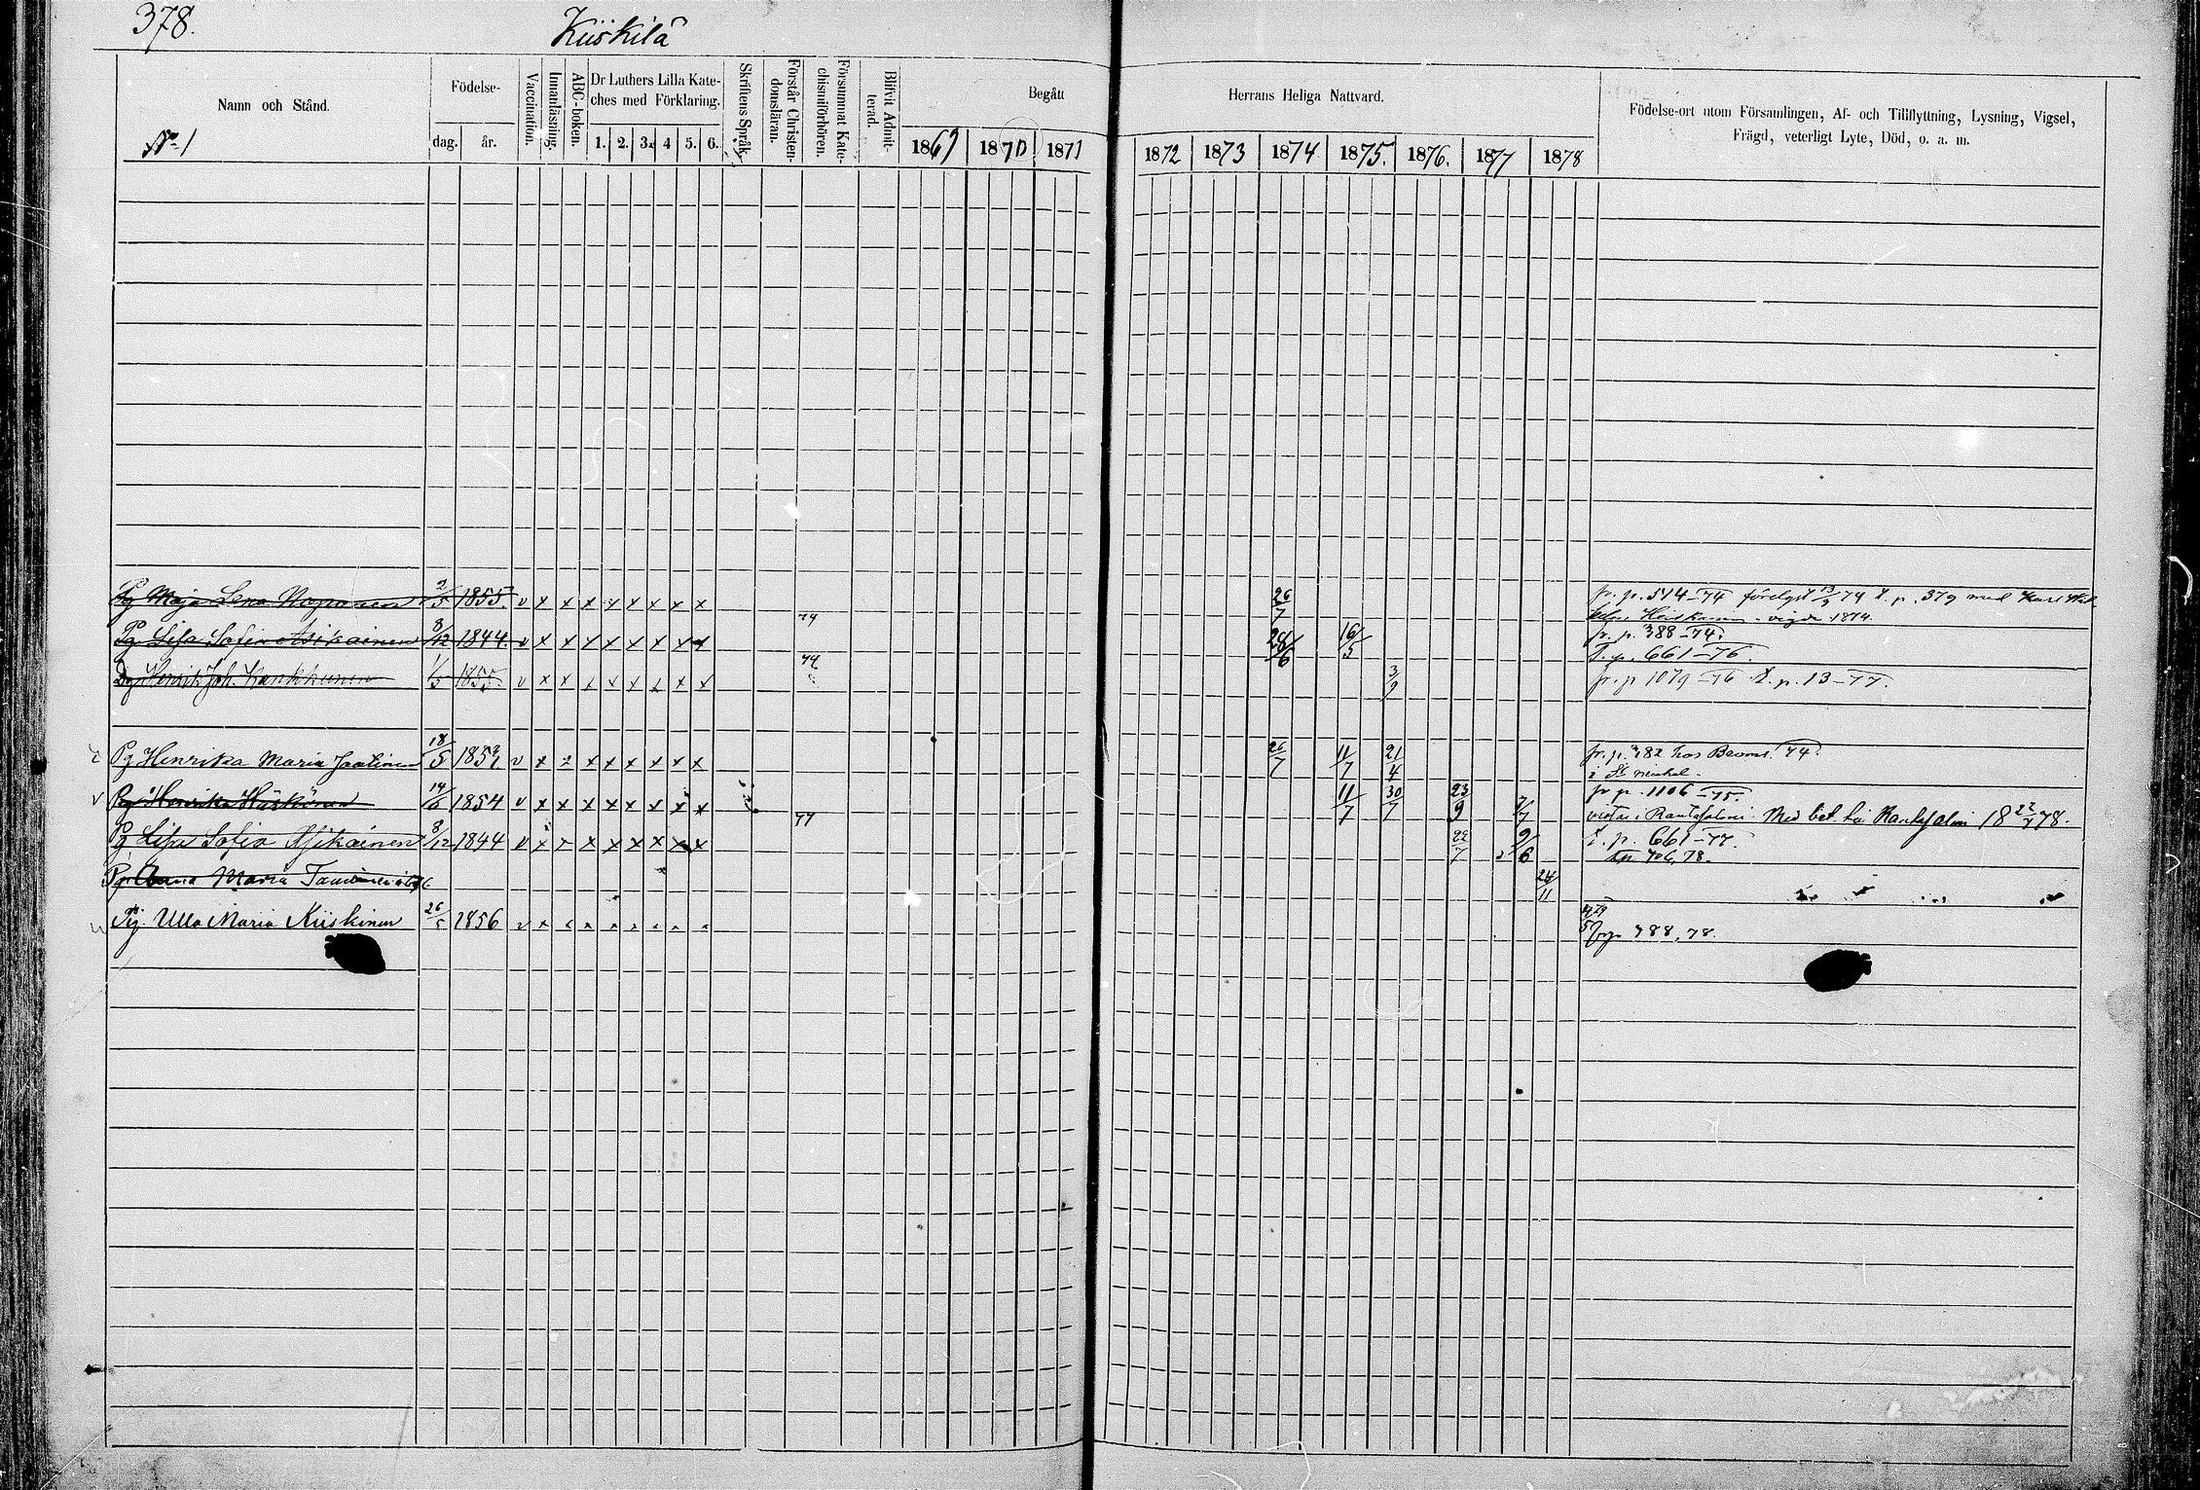 378.
Kiiskilä
Namn och Stånd.
No 1
Födelse-
dag.
år.
Vaccination.
Innanläsning.
ABC-boken.
Dr Luthers Lilla Kate-
ches med Förklaring.
1. 2. 3. 4 5. 6.
Skriftens Språk.
Förstår Christen-
domsläran.
Försummat Kate-
chismiförhören.
Blifvit Admit-
terad.
Begått
Herrans Heliga Nattvard.
1869 1870 1871
1872 1873 1874 1875. 1876. 1877 1878
Födelse-ort utom Församlingen, Af- och Tillflyttning, Lysning, Vigsel,
Frägd, veterligt Lyte, Död, o. a. m.
Pg Maja Lena 2/5 1855. v x x x x x x x x 26/7 fr. p. 544-74 förlyst 13/9 74 t. p. 379 med Karl
vigde 1874.
Pg Lisa Sofia Asikainen 8/12 1844. v x x x x x x x x 74 28/6 16/5 fr. p. 388-74.
T. p. 661-76.
Dg Henrik Joh. Kankkunen 1/5 1855. v x x x x x x x x 74 3/9 fr. p 1079-76 t. p. 13-77.
Pg Henrika Maria Jaatinen 18/5 1852 v x 2 x x x x x x 26/7 11/7 21/4 fr. p. 382 hos 74.
i St Michel.
Pg Henrika 14/6 1854 v x x x x x x x x 11/7 30/7 23/9 2/7 fr p. 1106-75.
vistas i Rantasalmi Med bet. till Rantasalmi 18 22/7 78.
Pg Lisa Sofia Asikainen 8/12 1844 v x x x x x x x x 77 22/7 9/6 t. p. 661-77.
706, 78.
Pg Anna Maria 24/11
Pig. Ulla Maria Kiiskinen 26/5 1856 v x
388, 78.